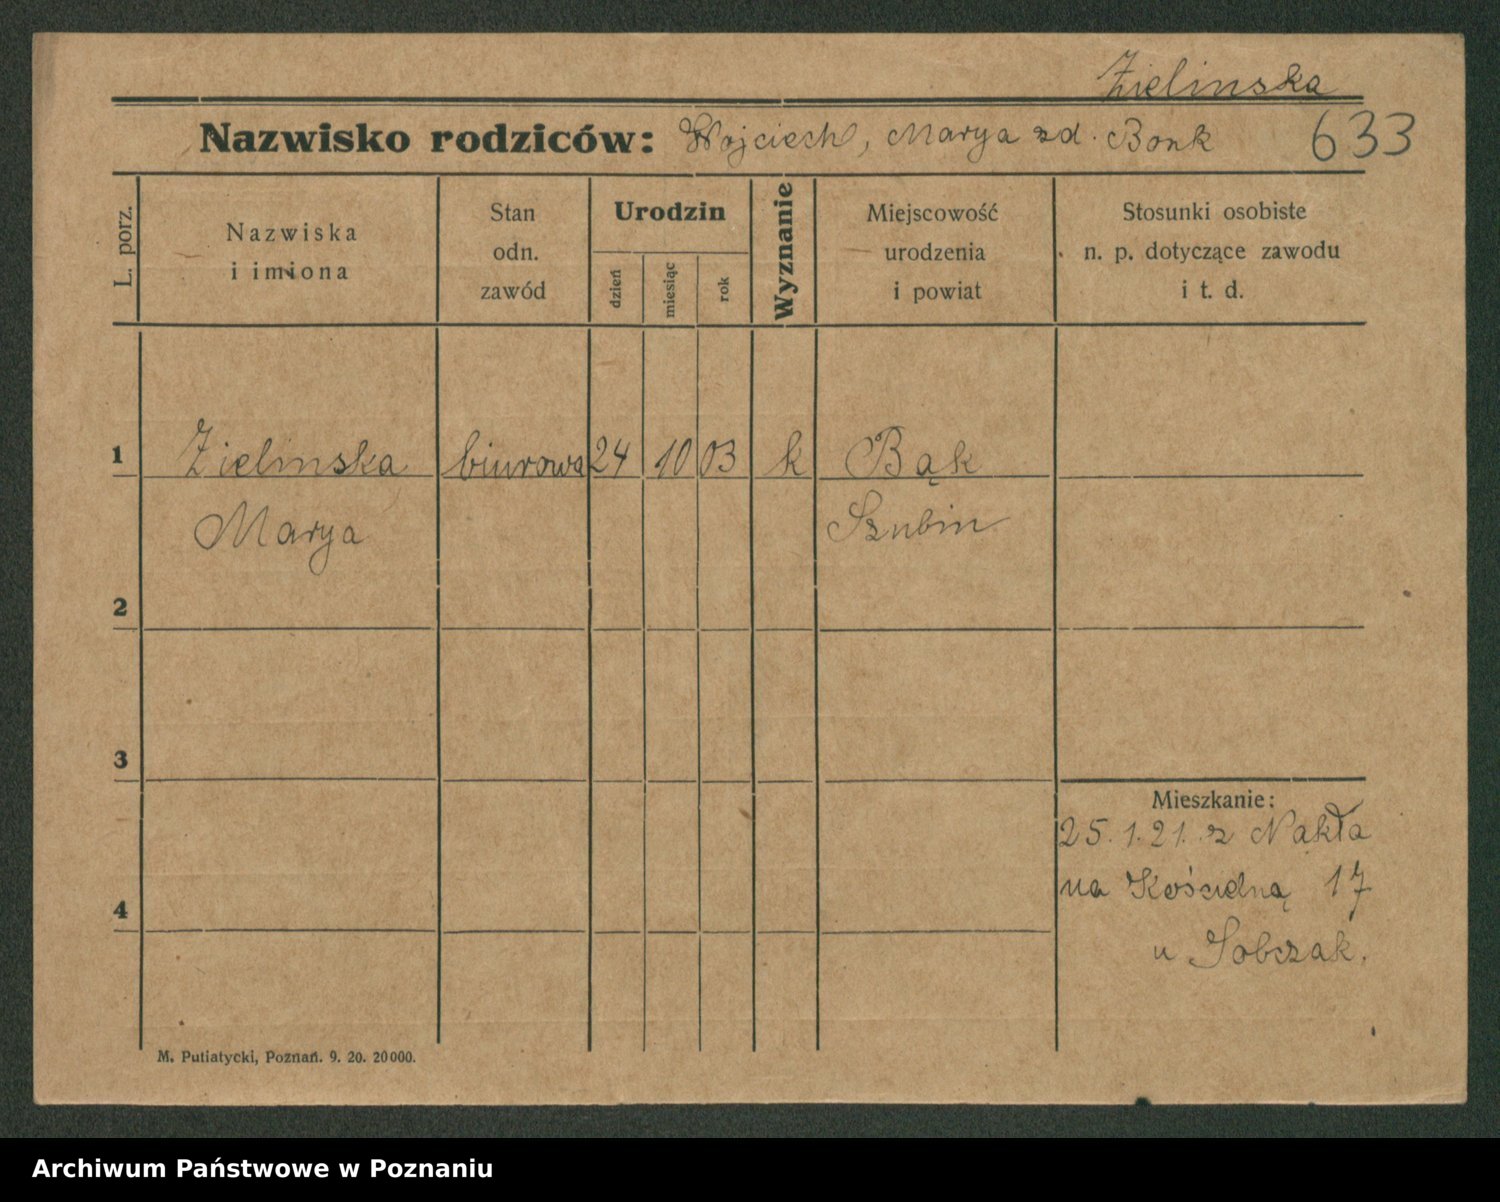 Zielinska
Nazwisko rodziców: Wojciech, Marya zd. Bonk 633
L. porz.
Nazwiska
i imiona
Stan
odn.
zawód
Urodzin
dzień
miesiąc
rok
Wyznanie
Miejscowość
urodzenia
i powiat
Stosunki osobiste
n. p. dotyczące zawodu
i t. d.
1 Zielinska biurowa 24 10 03 k Bąk
Marya Szubin
2
3
Mieszkanie:
25.1.21. z Nakła
na Kościelną 17
4
u Sobczak.
M. Putiatycki, Poznań. 9. 20. 20000.
Archiwum Państwowe w Poznaniu